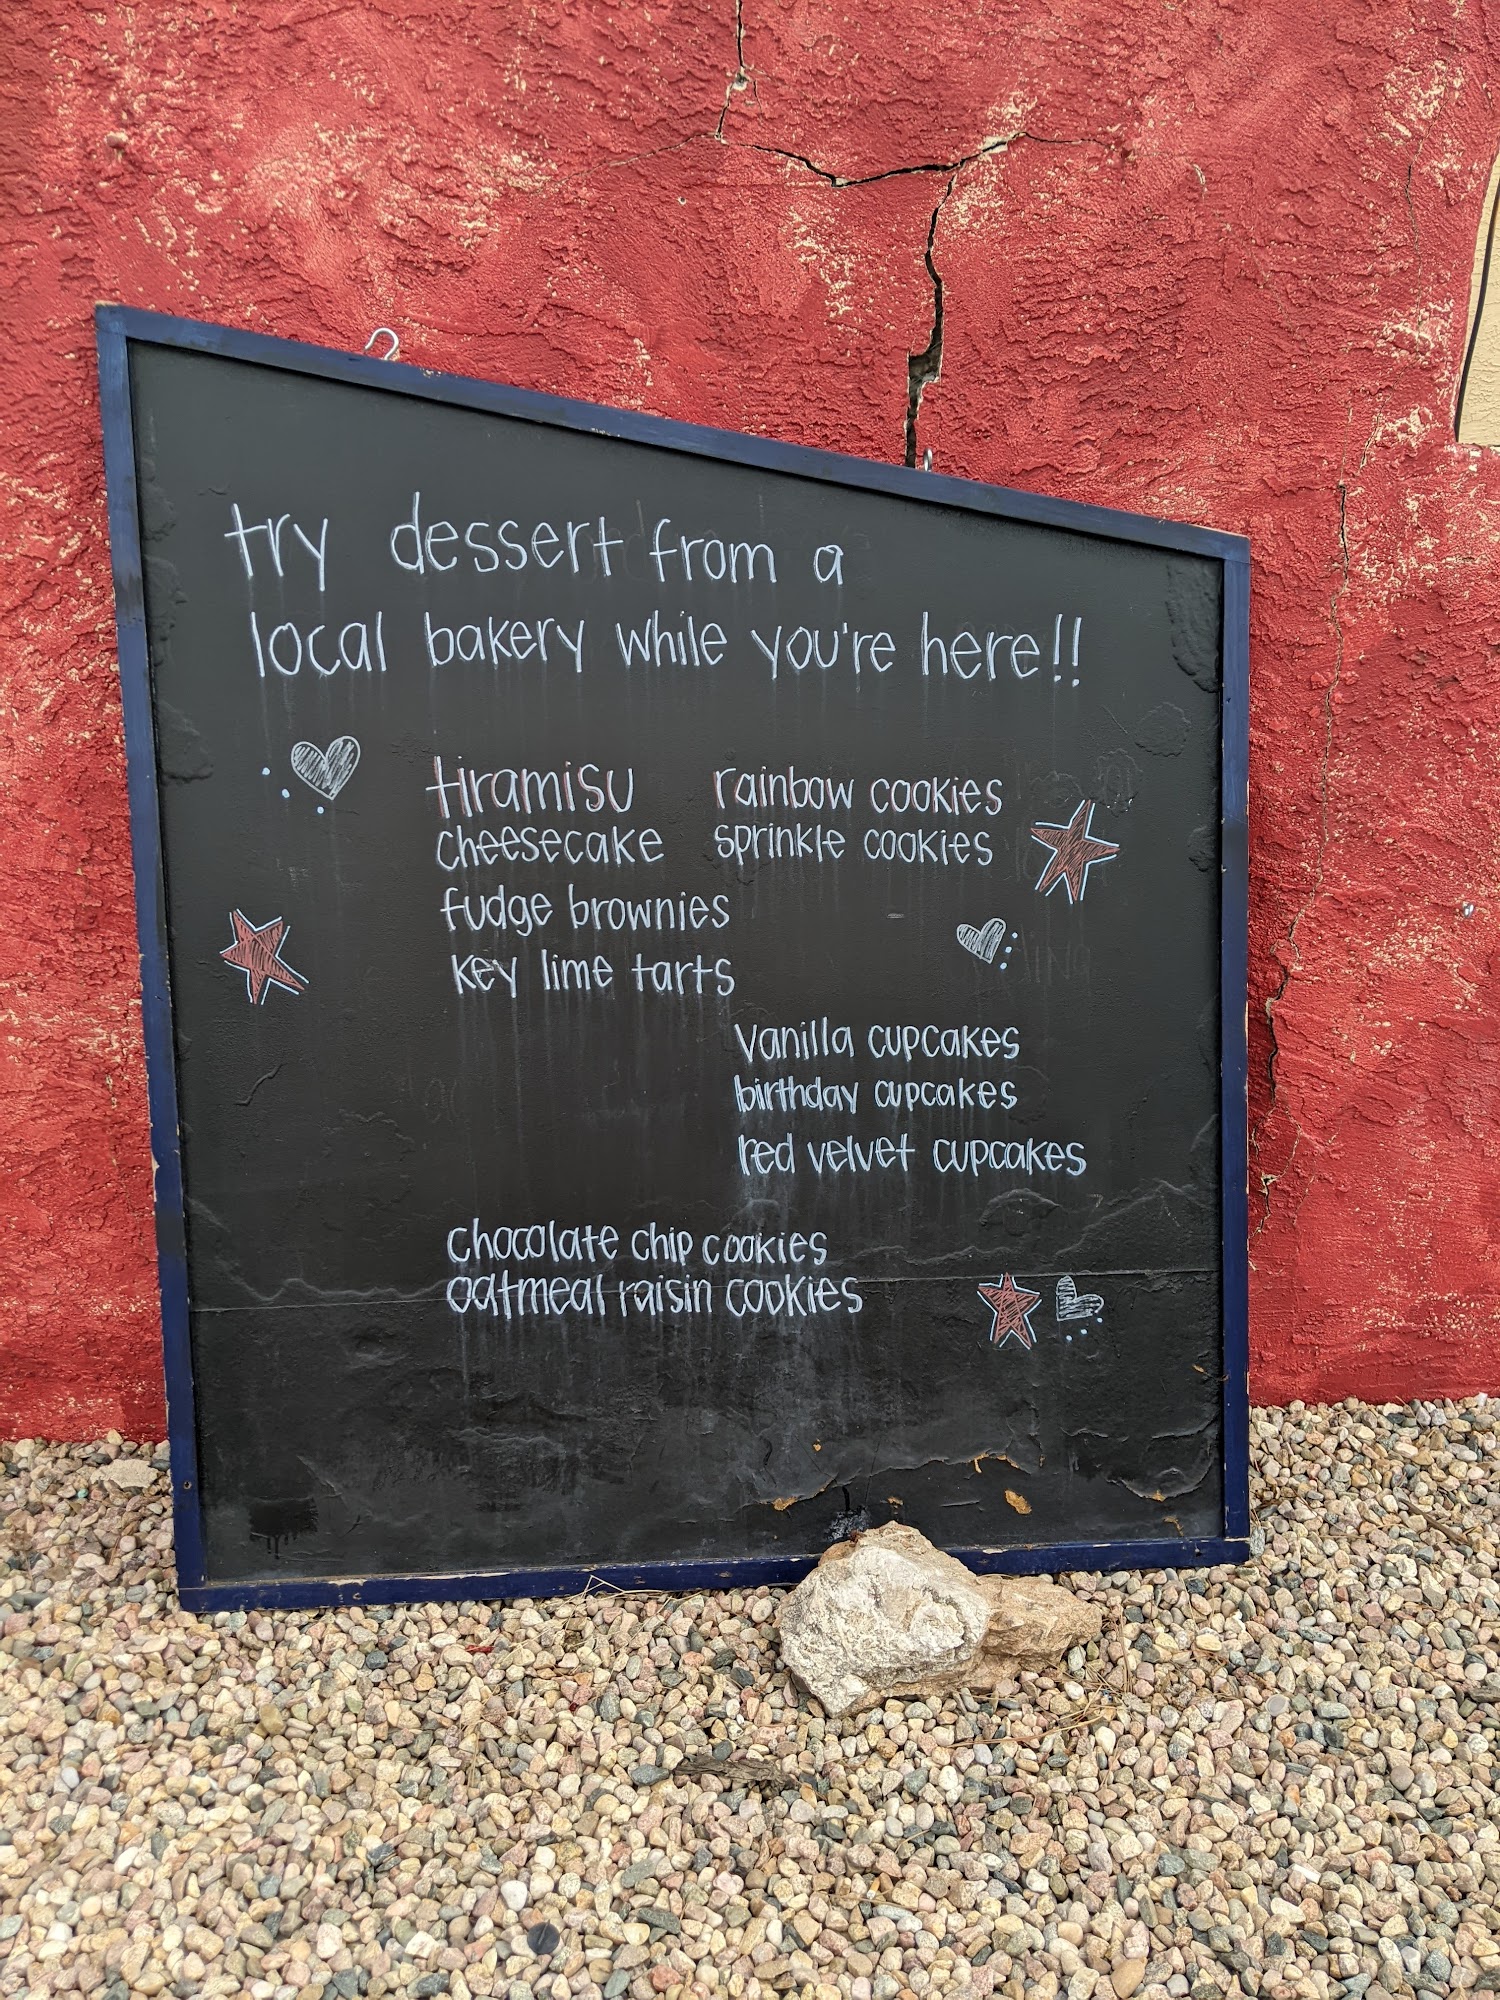 try dessert from a
local bakery while you're here!!
tiramisu
cheesecake
fudge brownies
key lime tarts
rainbow cookies
sprinkle cookies
vanilla cupcakes
birthday cupcakes
red velvet cupcakes
chocolate chip cookies
oatmeal raisin cookies